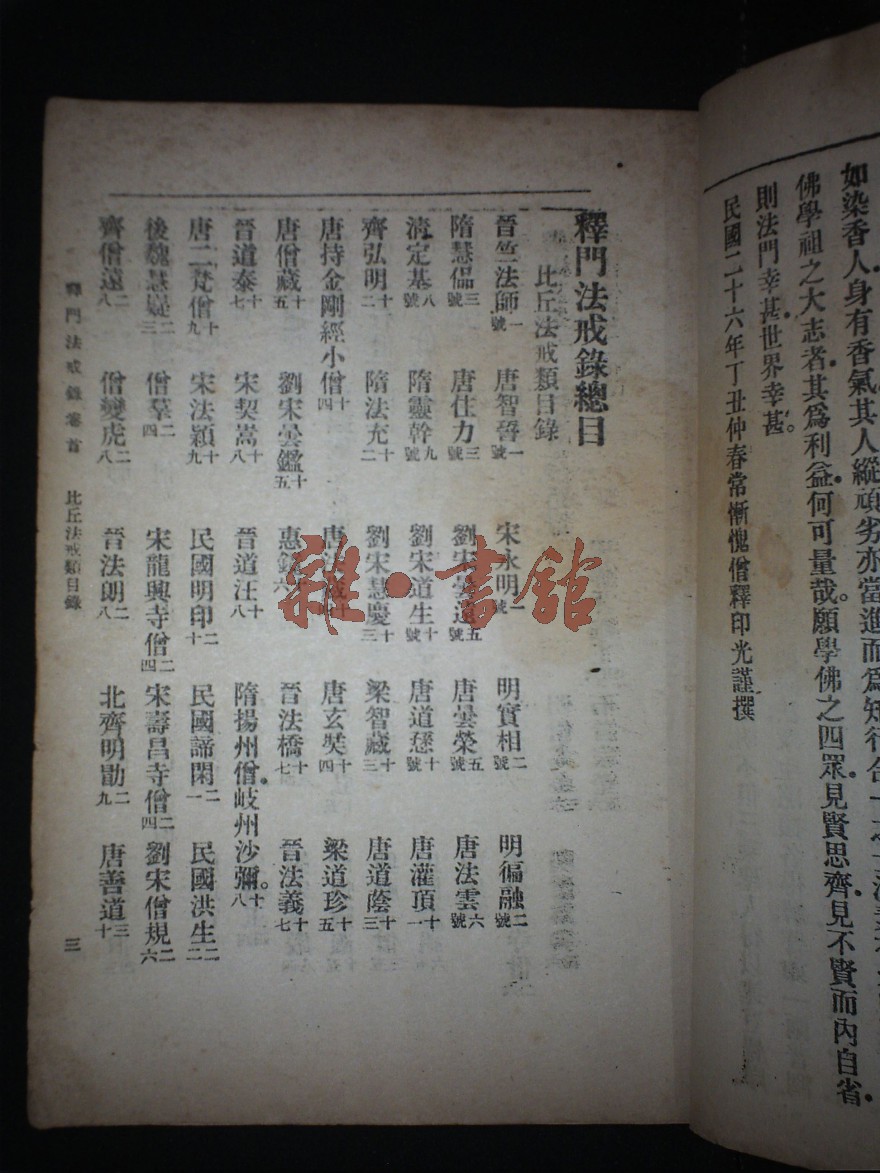 如染香人身有香氣其人縱頑劣亦當進而爲知行合一之
佛學祖之大志者其爲利益何可量哉願學佛之四眾見賢思齊見不賢而內自省
則法門幸甚世界幸甚
民國二十六年丁丑仲春常慚愧僧釋印光謹撰
釋門法戒錄總目
比丘法戒類目錄
晉竺法師一號 唐智晉一號 宋永明一號 明實相二號 明徧融二號
隋慧偘三號 唐住力三號 劉宋曇遠五號 唐曇榮五號 唐法雲六號
清定基八號 隋靈幹九號 劉宋道生十號 唐道愻十號 唐灌頂十一
齊弘明十二 隋法充十二 劉宋慧慶十三 梁智藏十三 唐道蔭十三
唐持金剛經小僧十四 唐玄奘十四 梁道珍十五
唐僧藏十五 劉宋曇鑑十五 晉法橋十七 晉法義十七
晉道泰十七 宋契嵩十八 晉道汪十八 隋揚州僧岐州沙彌十八
唐二梵僧十九 宋法穎十九 民國明印二十 民國諦閑二一 民國洪生二二
後魏慧嶷二三 僧羣二四 宋龍興寺僧二四 宋壽昌寺僧二四 劉宋僧規二六
齊僧遠二八 僧變虎二八 晉法朗二八 北齊明勖二九 唐善道三十
釋門法戒錄卷首 比丘法戒類目錄 三
雜·書館